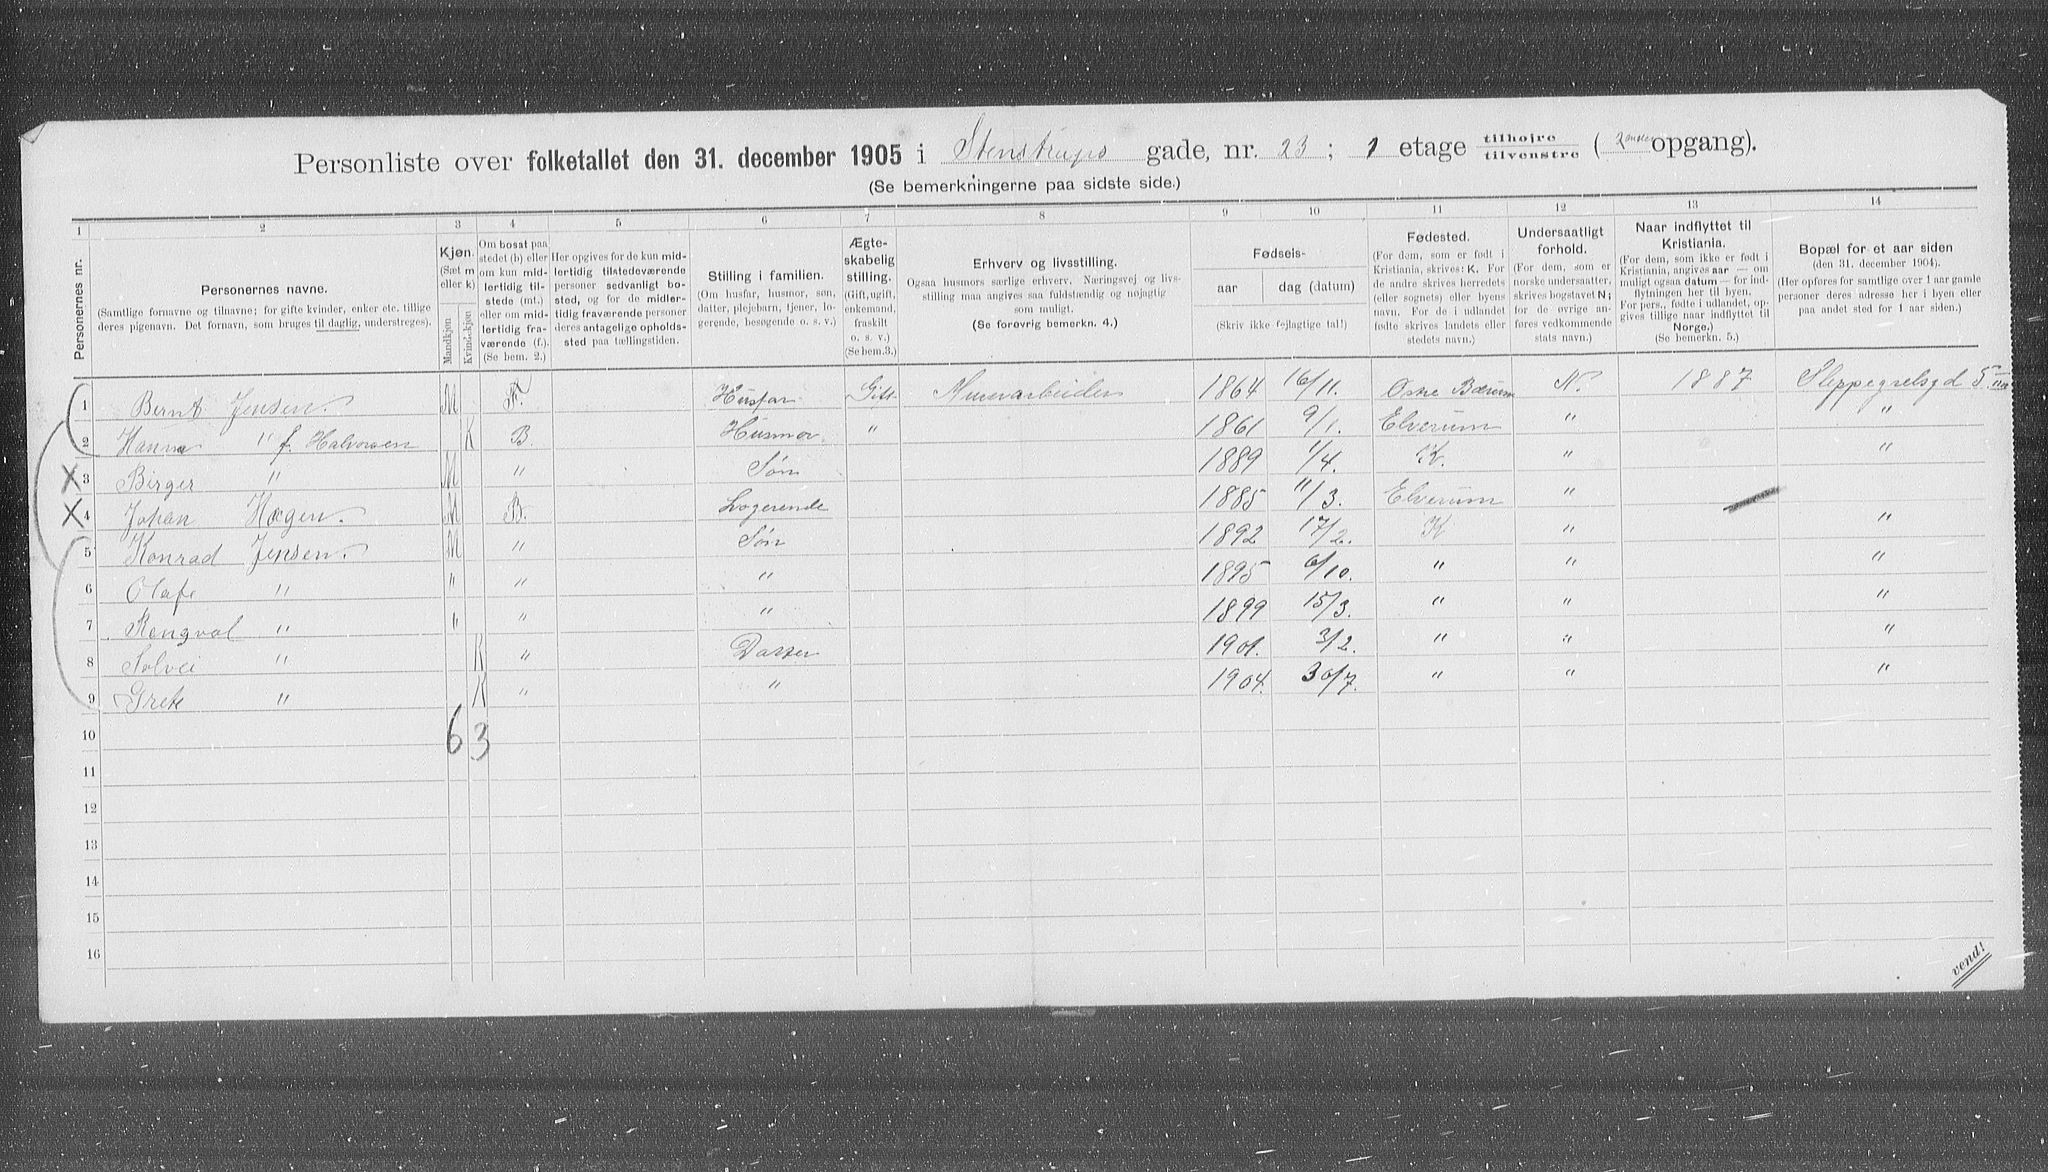 Personliste over folketallet den 31. december 1905 i Stenstrups gade, nr. 23; 1 etage tilhøjre / tilvenstre ( opgang).
(Se bemerkningerne paa sidste side.)
1 2 3 4 5 6 7 8 9 10 11 12 13 14
Personernes nr.
Personernes navne.
(Samtlige fornavne og tilnavne; for gifte kvinder, enker etc. tillige deres pigenavn. Det fornavn, som bruges til daglig, understreges).
Kjøn.
(Sæt m eller k)
Mandkjøn
Kvindekjøn
Om bosat paa stedet (b) eller om kun midlertidig tilstede (mt.) eller om midlertidig fraværende (f.) (Se bem. 2.)
Her opgives for de kun midlertidig tilstedeværende personer sedvanligt bosted, og for de midlertidig fraværende personer deres antagelige opholdssted paa tællingstiden.
Stilling i familien.
(Om husfar, husmor, søn, datter, plejebarn, tjener, logerende, besøgende o. s. v.)
Ægteskabelig stilling.
(Gift, ugift, enkemand, fraskilt o. s. v.) (Se bem. 3.)
Erhverv og livsstilling.
Ogsaa husmors særlige erhverv. Næringsvej og livsstilling maa angives saa fuldstændig og nøjagtig som muligt.
(Se forøvrig bemerkn. 4.)
Fødsels-
aar dag (datum)
(Skriv ikke fejlagtige tal!)
Fødested.
(For dem, som er født i Kristiania, skrives: K. For de andre skrives herredets (eller sognets) eller byens navn. For de i udlandet fødte skrives landets eller stedets navn.)
Undersaatligt forhold.
(For dem, som er norske undersaatter, skrives bogstavet N; for de øvrige anføres vedkommende stats navn.)
Naar indflyttet til Kristiania.
(For dem, som ikke er født i Kristiania, angives aar — om muligt ogsaa datum — for indflytningen her til byen. For pers., fødte i udlandet, opgives tillige naar indflyttet til Norge.)
(Se bemerkn. 5.)
Bopæl for et aar siden
(den 31. december 1904).
(Her opføres for samtlige over 1 aar gamle personer deres adresse her i byen eller paa andet sted for 1 aar siden.)
1 Bernt Jensen. M F. Husfar Gift Murerarbeider 1864 16/11. Østre Bærum N. 1887 Sleppegrelsgd 5
2 Hanna " f. Halvorsen K B. Husmor. " 1861 9/1. Elverum " "
X 3 Birger " M " Søn 1889 1/4. K. " "
X 4 Johan Hagen. M B. Logerende 1885 11/3. Elverum "
5 Konrad Jensen. M " Søn 1892 17/2. K " "
6 Olafe " " " " 1895 6/10. " " "
7 Rengval " " " " 1899 15/3. " " "
8 Solvei " K " Datter 1901. 3/2. " " "
9 Grete " K " " 1904. 30/7. " " "
10 6 3
11
12
13
14
15
16
vend!